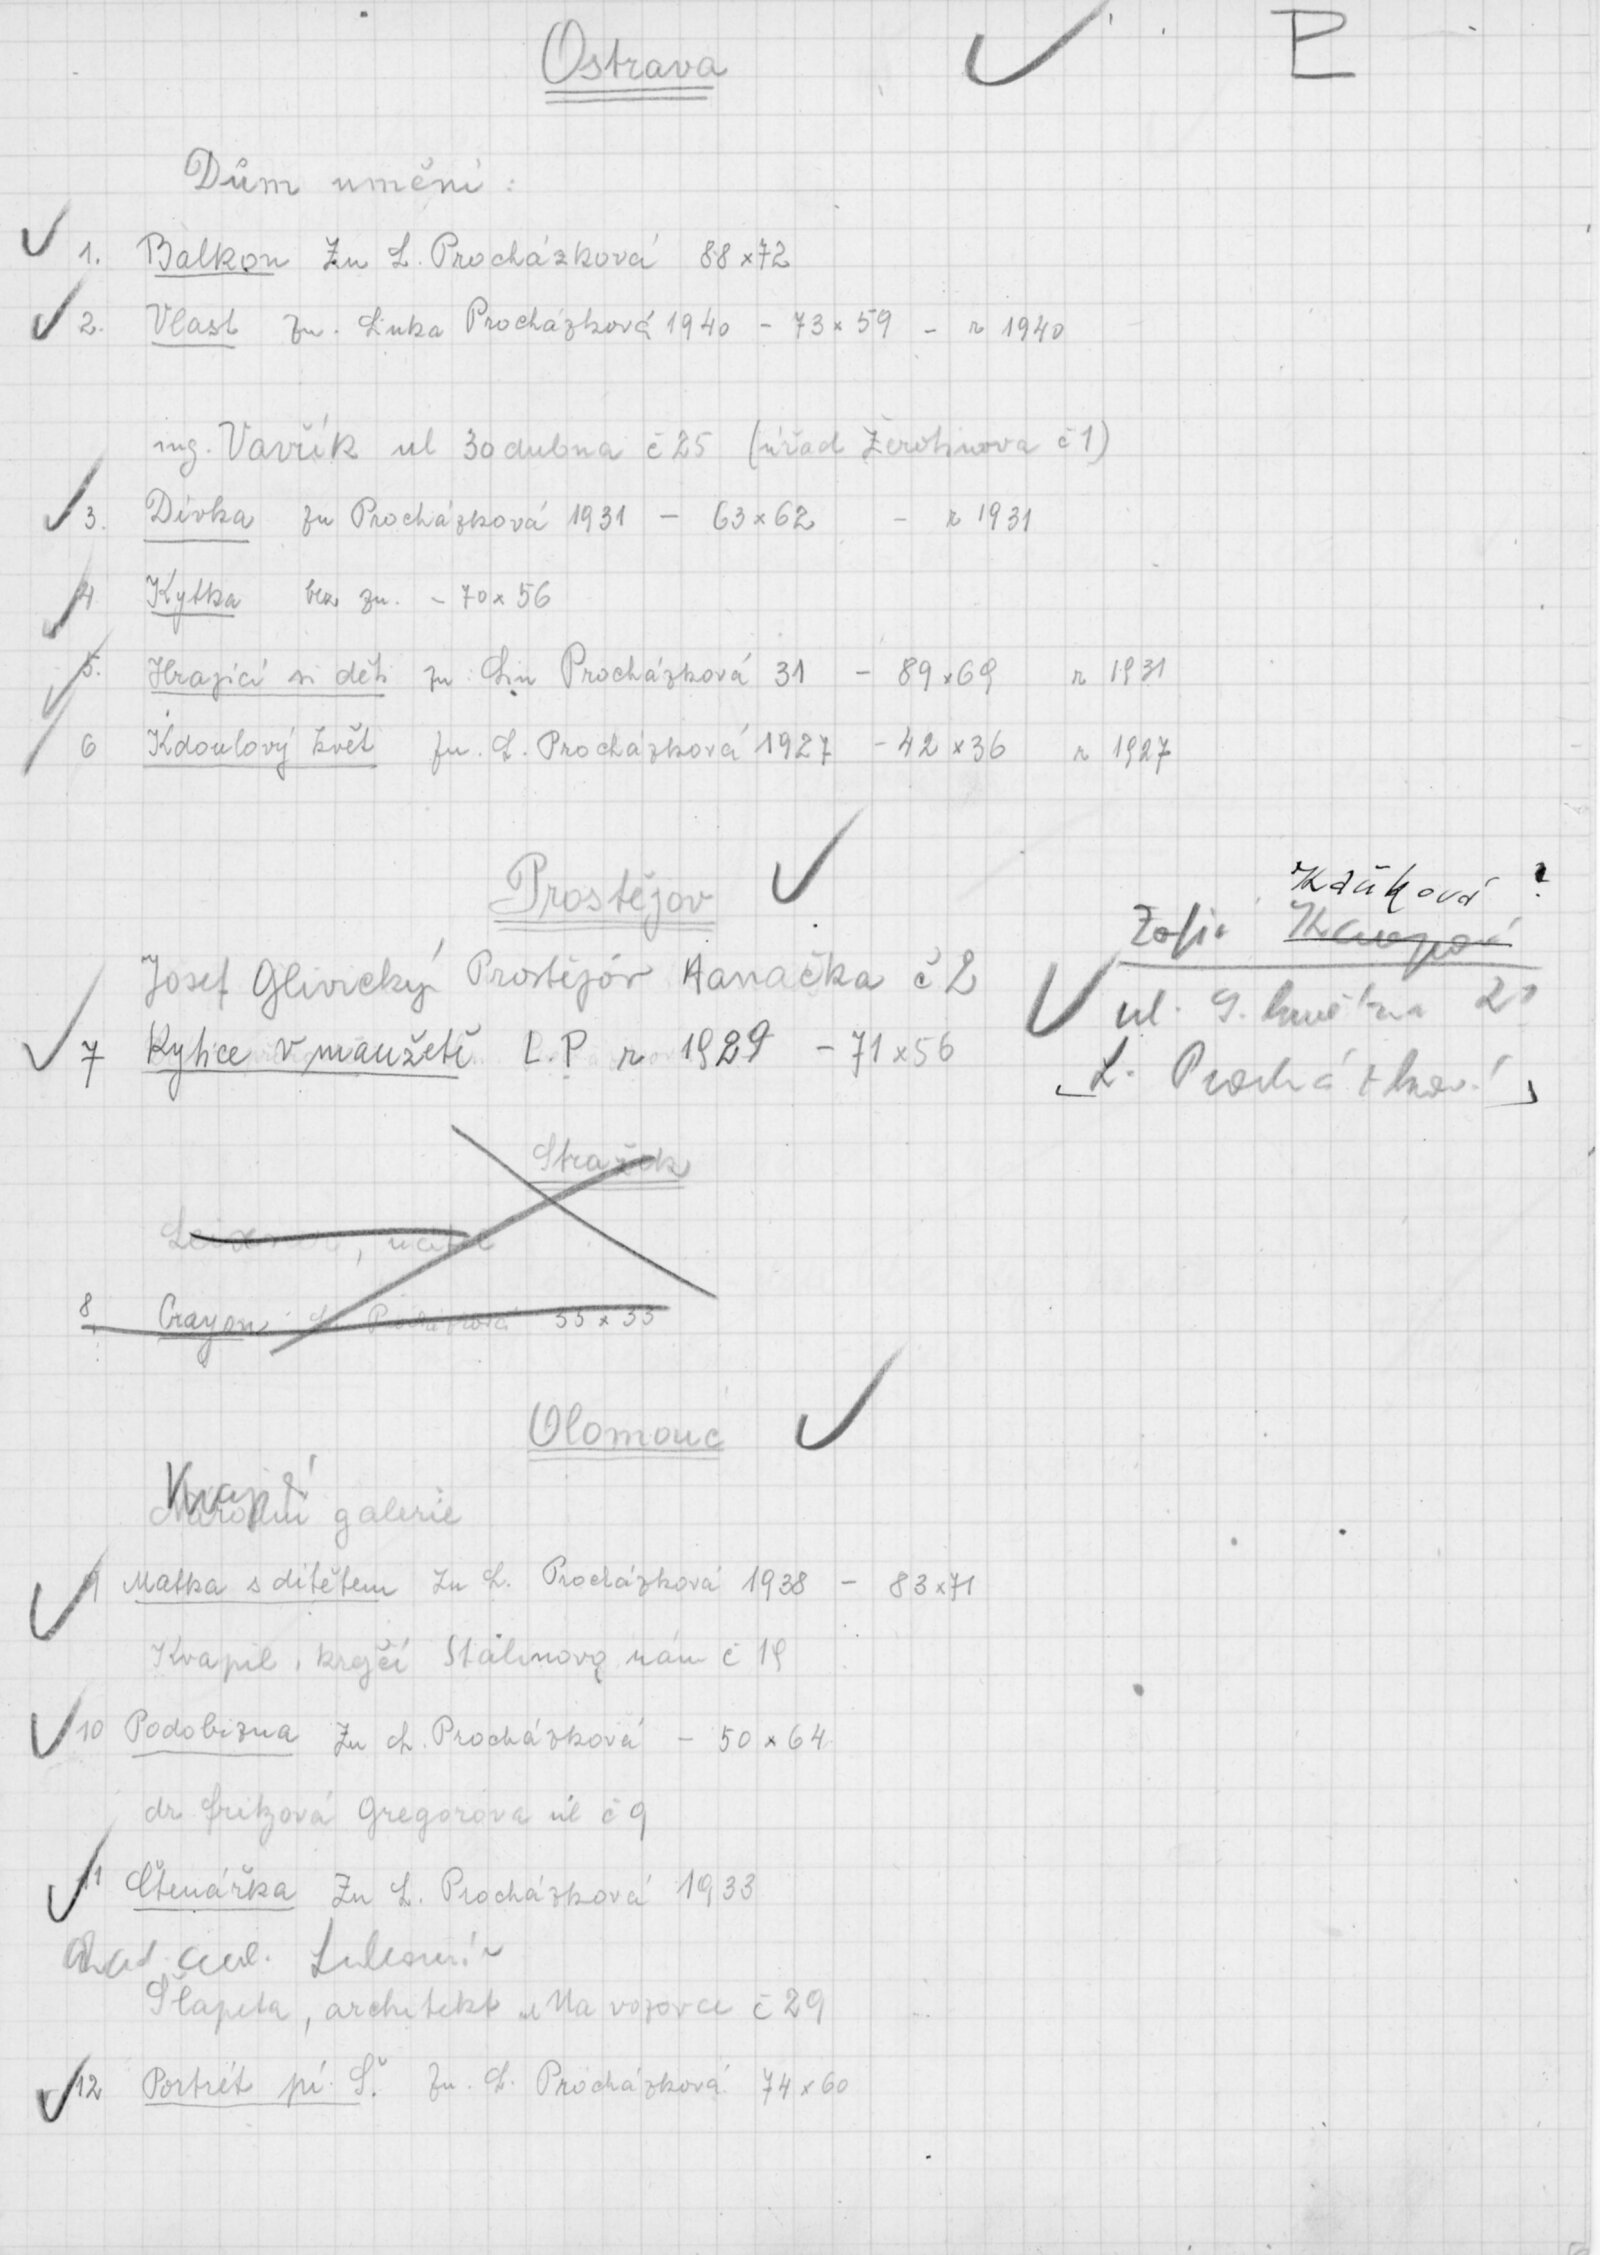 Ostrava
P
Dům umění :
1. Balkon Zn L. Procházková 88 x 72
2. Vlast zn. Linka Procházková 1940 - 73 x 59 - r 1940
ing. Vavřík ul 30 dubna č 25 (úřad Žerotinova č 1)
3. Dívka zn Procházková 1931 - 63 x 62 - r 1931
4 Kytka bez zn. - 70 x 56
5. Hrající si děti zn Lin Procházková 31 - 89 x 69 r 1931
6 Kdoulový květ zn. L. Procházková 1927 - 42 x 36 r 1927
Prostějov
Kaňková ?
Žofie
Josef Glivický Prostějov Hanačka č 2
ul. 9. května 21
7 Kytice v manžetě L.P r 1929 - 71 x 56
L. Procházková
Stražek
učitel
8. Crayon Procházková 55 x 35
Olomouc
Krajská
Národní galerie
9 Matka s dítětem Zn L. Procházková 1938 - 83 x 71
Kvapil, krejčí Stalinovo nám č 19
10 Podobizna Zn L. Procházková - 50 x 64
dr. Gregorova ul č 9
11 Čtenářka Zn L. Procházková 1933
Lubomír
Šlapeta, architekt Na vozovce č 29
12 Portrét pí. Š. Zn. L. Procházková 74 x 60